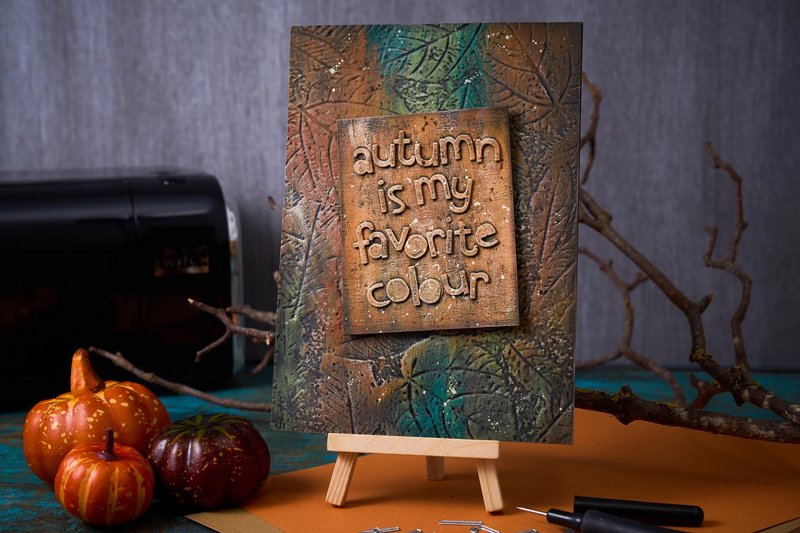 autumn
is my
favorite
colour